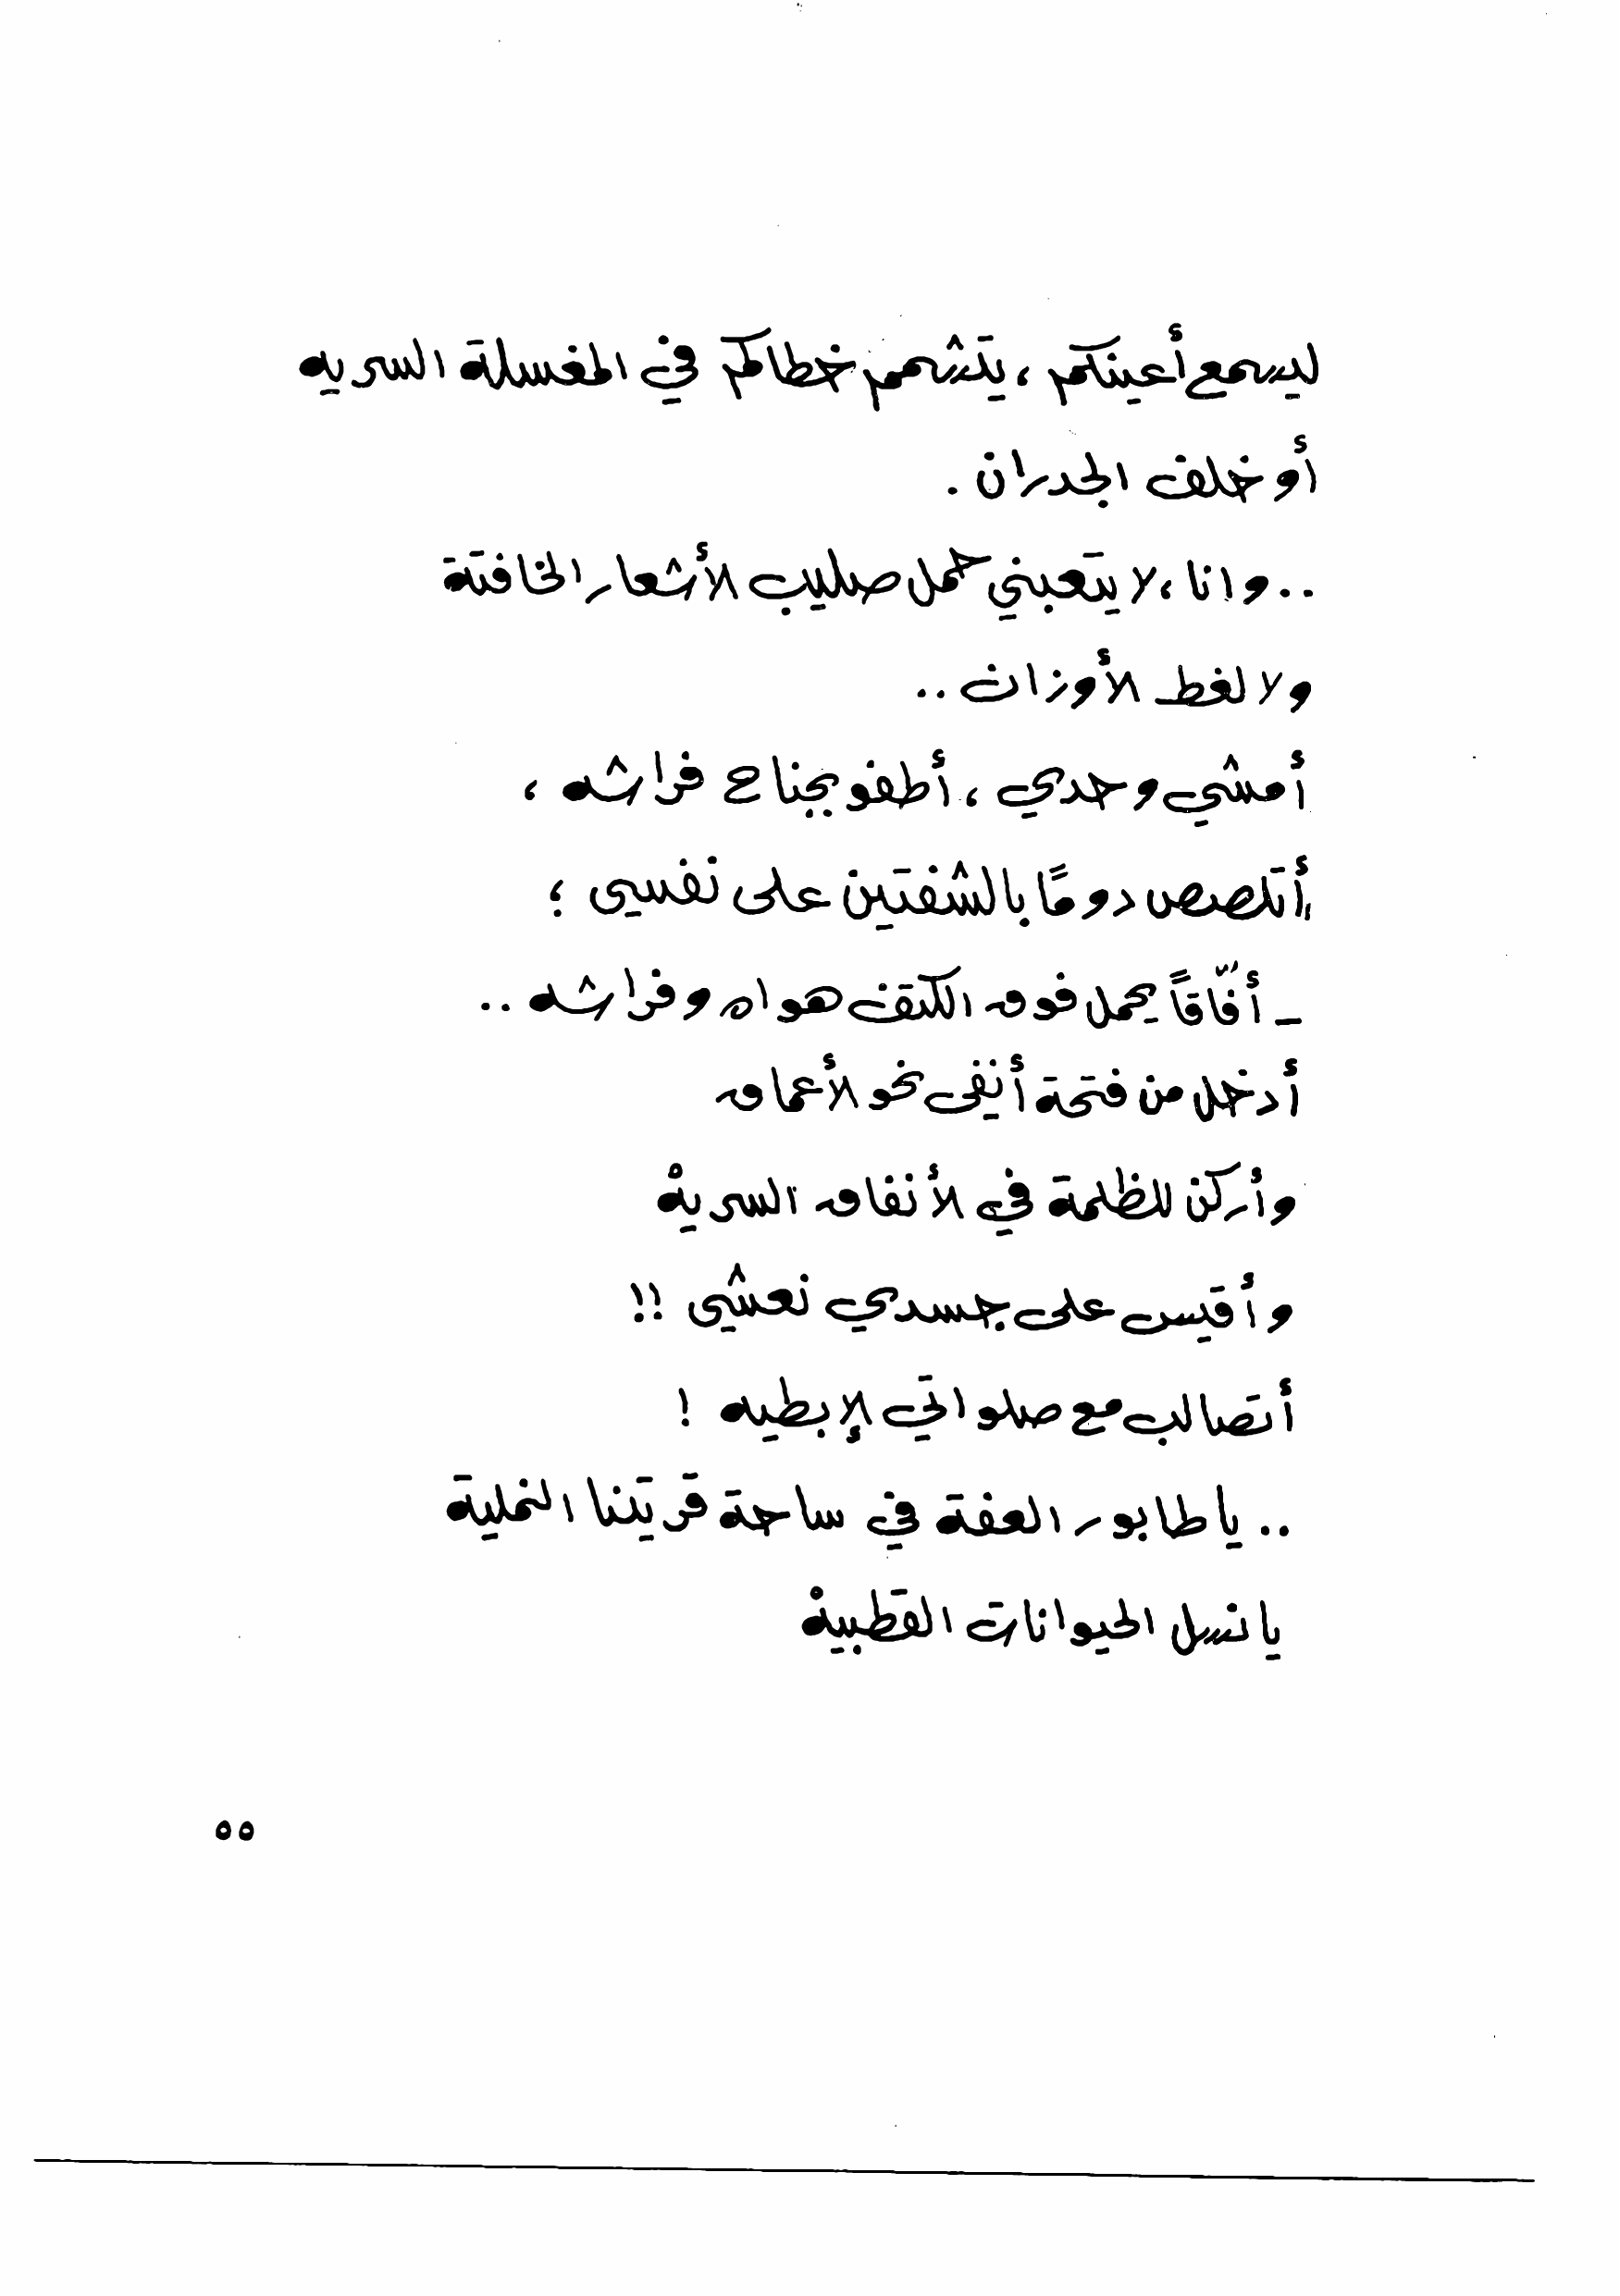 ليسمع أعينكم ، يتشمم خطاكم في المغسلة السريه
أو خلف الجدران .
.. وانا ، لا يتعبني حمل صليب الأشعار الخافتة
ولا لغط الأوزان ..
أمشي وحدي ، أطفو بجناح فراشه ،
أتلصص دومًا بالشفتين على نفسي ؛
ـ أفّاقاً يحمل فوق الكتف هواه وفراشه ..
أدخل من فتحة أنفي نحو الأعماق
وأركن للظلمة في الأنفاق السريهْ
وأقيس على جسدي نعشي !!
أتصالب مع صلواتي الإبطيه !
.. يا طابور العفة في ساحة قريتنا النملية
يا نسل الحيوانات القطبيهْ
٥٥